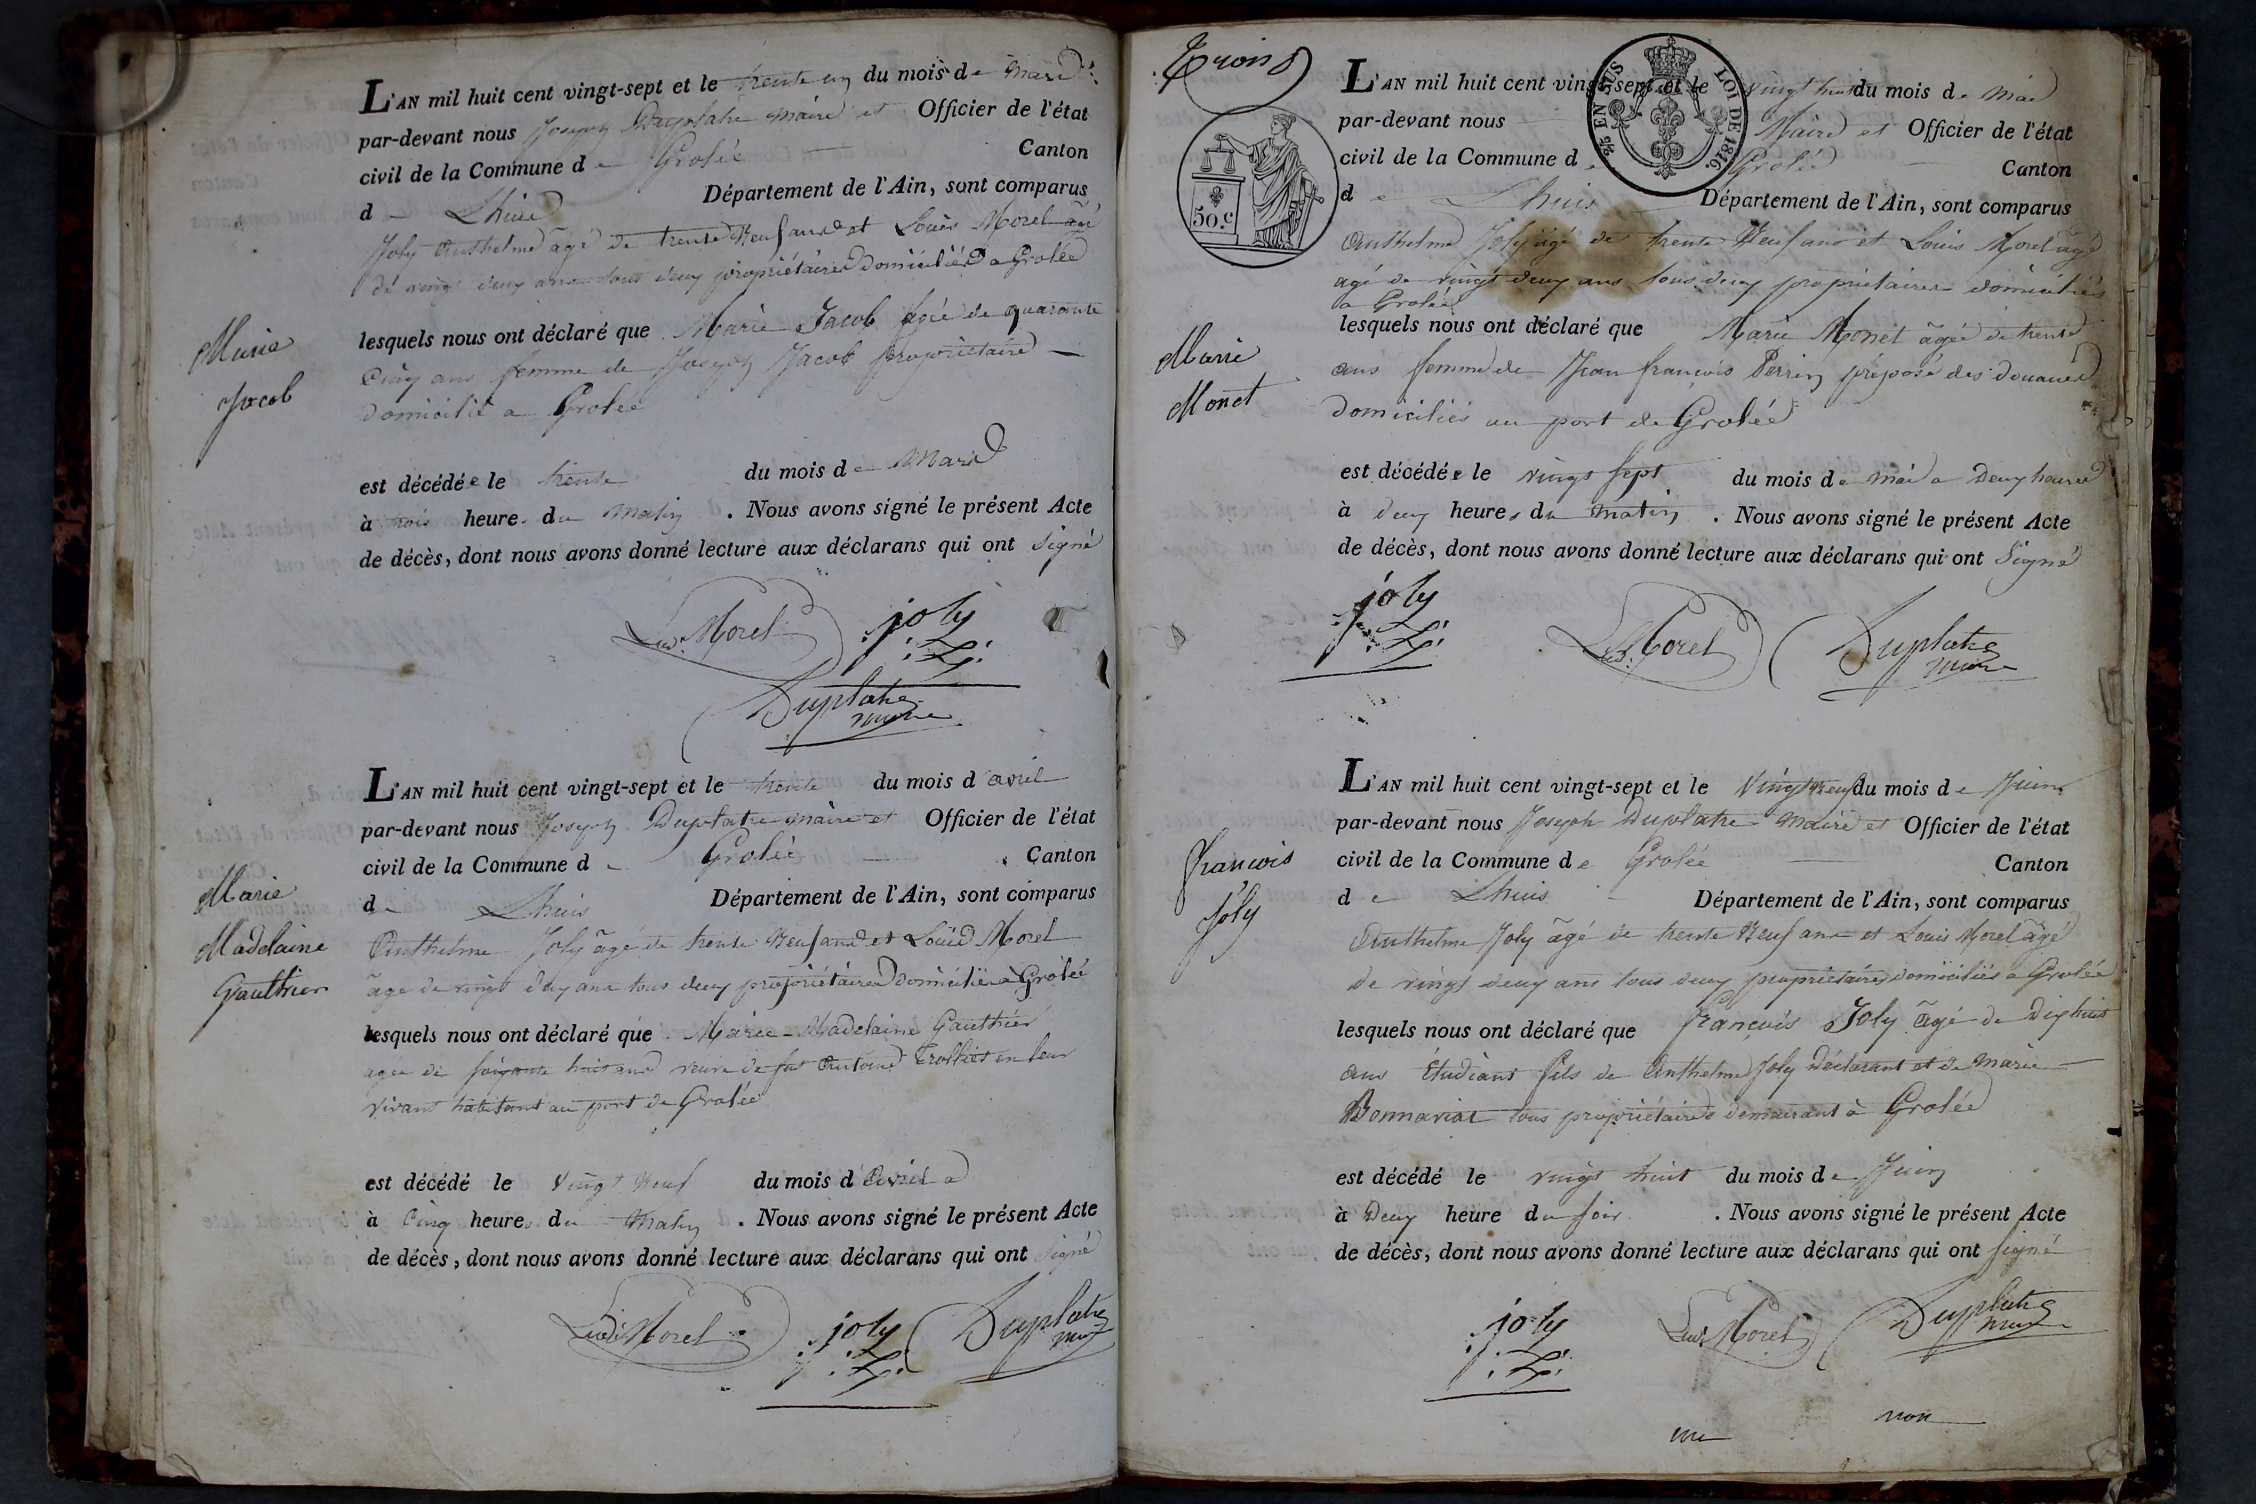 L'AN mil huit cent vingt-sept et le trente un du mois de Mars
par-devant nous Joseph Duplatre maire et Officier de l'état
civil de la Commune de Grolée Canton
de Lhuis Département de l'Ain, sont comparus
Joly Anthelme agé de trente neuf ans et Louis Morel agé
de vingt deux ans tous deux propriétaires domiciliés a Grolée
Marie
Jacob
lesquels nous ont déclaré que Marie Jacob agée de quarante
cinq ans femme de Joseph Jacob propriétaire
domicilié a Grolée
est décédée le trente du mois de Mars
à trois heure du matin. Nous avons signé le présent Acte
de décès, dont nous avons donné lecture aux déclarans qui ont signé
Morel joly
Duplatre
maire
L'AN mil huit cent vingt-sept et le trente du mois d'avril
par-devant nous Joseph Duplatre maire et Officier de l'état
civil de la Commune de Grolée Canton
de Lhuis Département de l'Ain, sont comparus
Marie
Madelaine
Gauthier
Anthelme Joly âgé de trente neuf ans et Louis Morel
âgé de vingt deux ans tous deux propriétaires domiciliés à Grolée
lesquels nous ont déclaré que Marie Madelaine Gauthier
agée de soixante huit ans veuve de fut Antoine Trolliet en leur
vivant habitant au port de Grolée
est décédé le vingt neuf du mois d'Avril a
à cinq heures du matin. Nous avons signé le présent Acte
de décès, dont nous avons donné lecture aux déclarans qui ont signé
Morel joly Duplatre
maire
Trois
50.c
EN SUS
LOI DE 1816.
L'AN mil huit cent vingt-sept et le vingt huit du mois de Mai
par-devant nous Maire et Officier de l'état
civil de la Commune d Grolée Canton
de Lhuis Département de l'Ain, sont comparus
Anthelme Joly agé de trente neuf ans et Louis Morel agé
agé de vingt deux ans tous deux propriétaires domiciliés
a Grolée
Marie
Monet
lesquels nous ont déclaré que Marie Monet âgée de trente
ans femme de Jean françois Perrin préposé des douanes
domiciliés au port de Grolée
est décédée le vingt sept du mois de mai a Deux heures
à deux heures du matin. Nous avons signé le présent Acte
de décès, dont nous avons donné lecture aux déclarans qui ont Signé
joly Morel Duplatre
maire
L'AN mil huit cent vingt-sept et le vingt neuf du mois de Juin
par-devant nous Joseph Duplatre Maire et Officier de l'état
civil de la Commune de Grolée Canton
de Lhuis Département de l'Ain, sont comparus
francois
joly
Anthelme Joly âgé de trente neuf ans et Louis Morel âgé
de vingt deux ans tous deux propriétaires domiciliés a Grolée
lesquels nous ont déclaré que francois Joly âgé de Dix huit
ans Étudiant fils de Anthelme Joly Déclarant et de Marie
Bonnariat tous propriétaires demeurant à Grolée
est décédé le vingt huit du mois de Juin
à Deux heure du soir. Nous avons signé le présent Acte
de décès, dont nous avons donné lecture aux déclarans qui ont signé
joly Morel Duplatre
maire